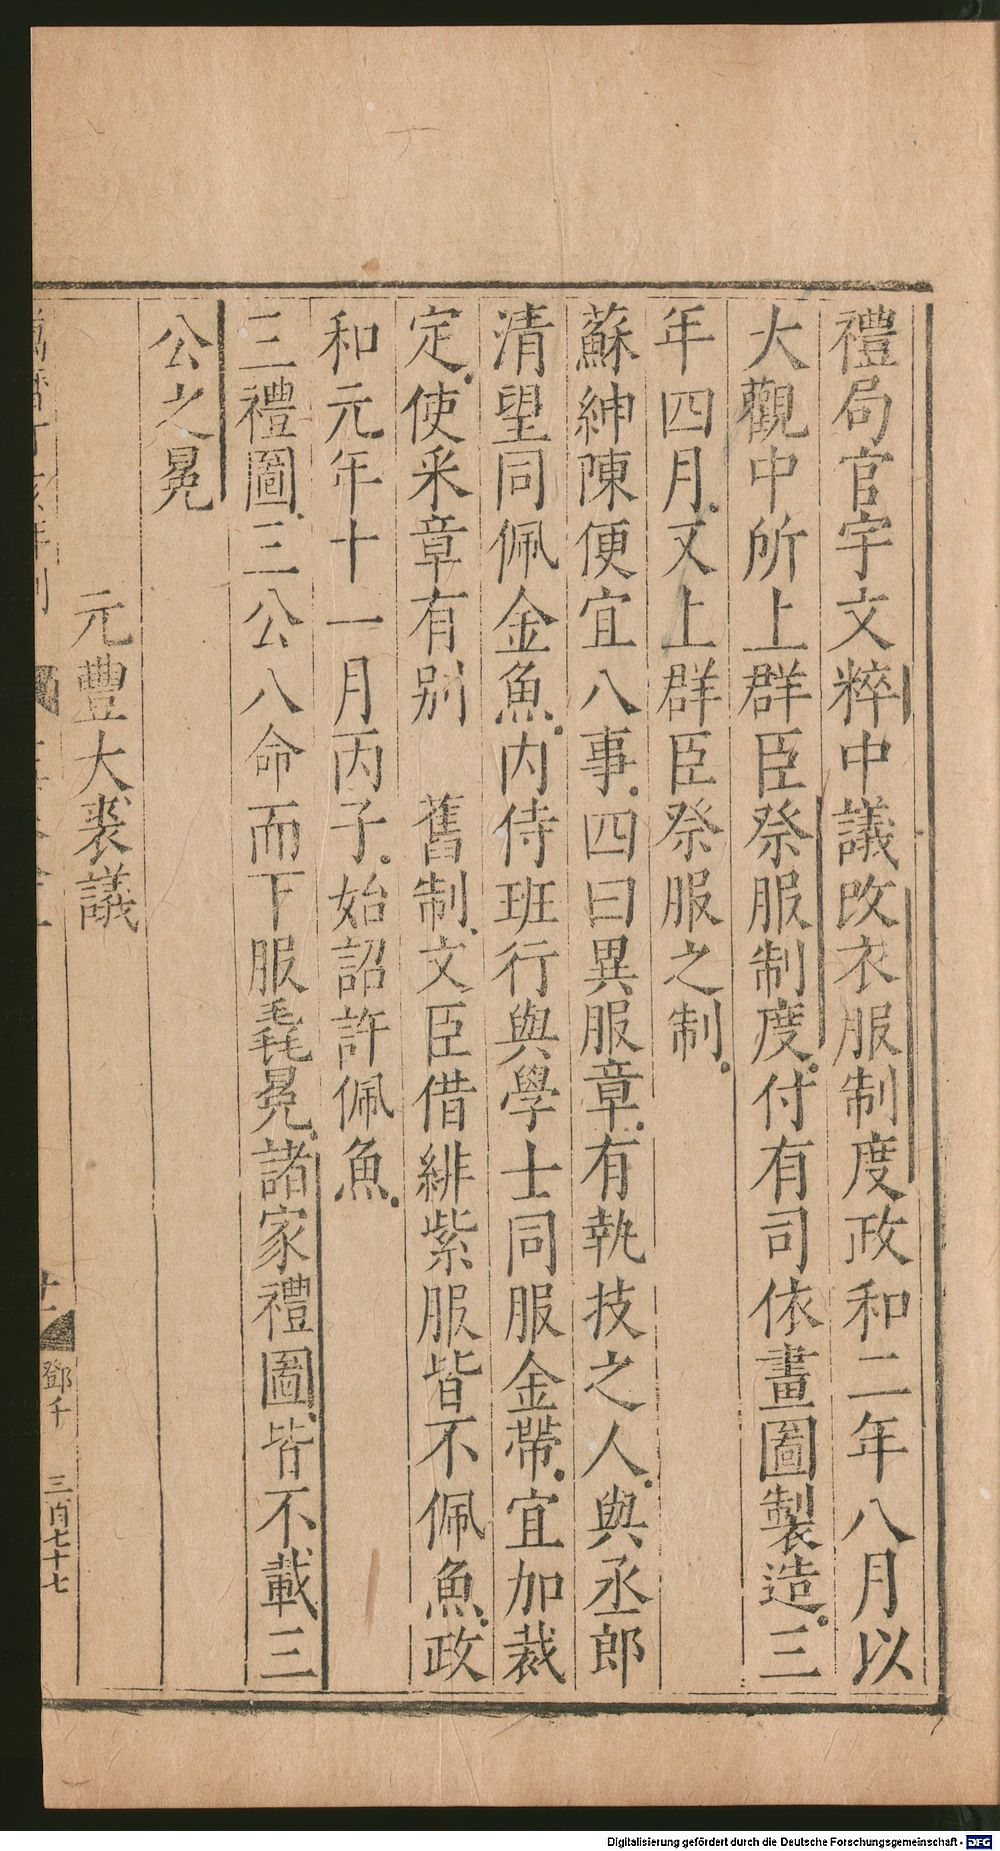 禮局官宇文粹中議改衣服制度政和二年八月以
大觀中所上群臣祭服制度付有司依畫圖製造三
年四月又上群臣祭服之制
蘇紳陳便宜八事四曰異服章有執技之人與丞郎
清望同佩金魚内侍班行與學士同服金帶宜加裁
定使采章有别　舊制文臣借緋紫服皆不佩魚政
和元年十一月丙子始詔許佩魚
三禮圖三公八命而下服毳冕諸家禮圖皆不載三
公之冕
元豐大裘議
鄧千
三百七十七
Digitalisierung gefördert durch die Deutsche Forschungsgemeinschaft - DFG